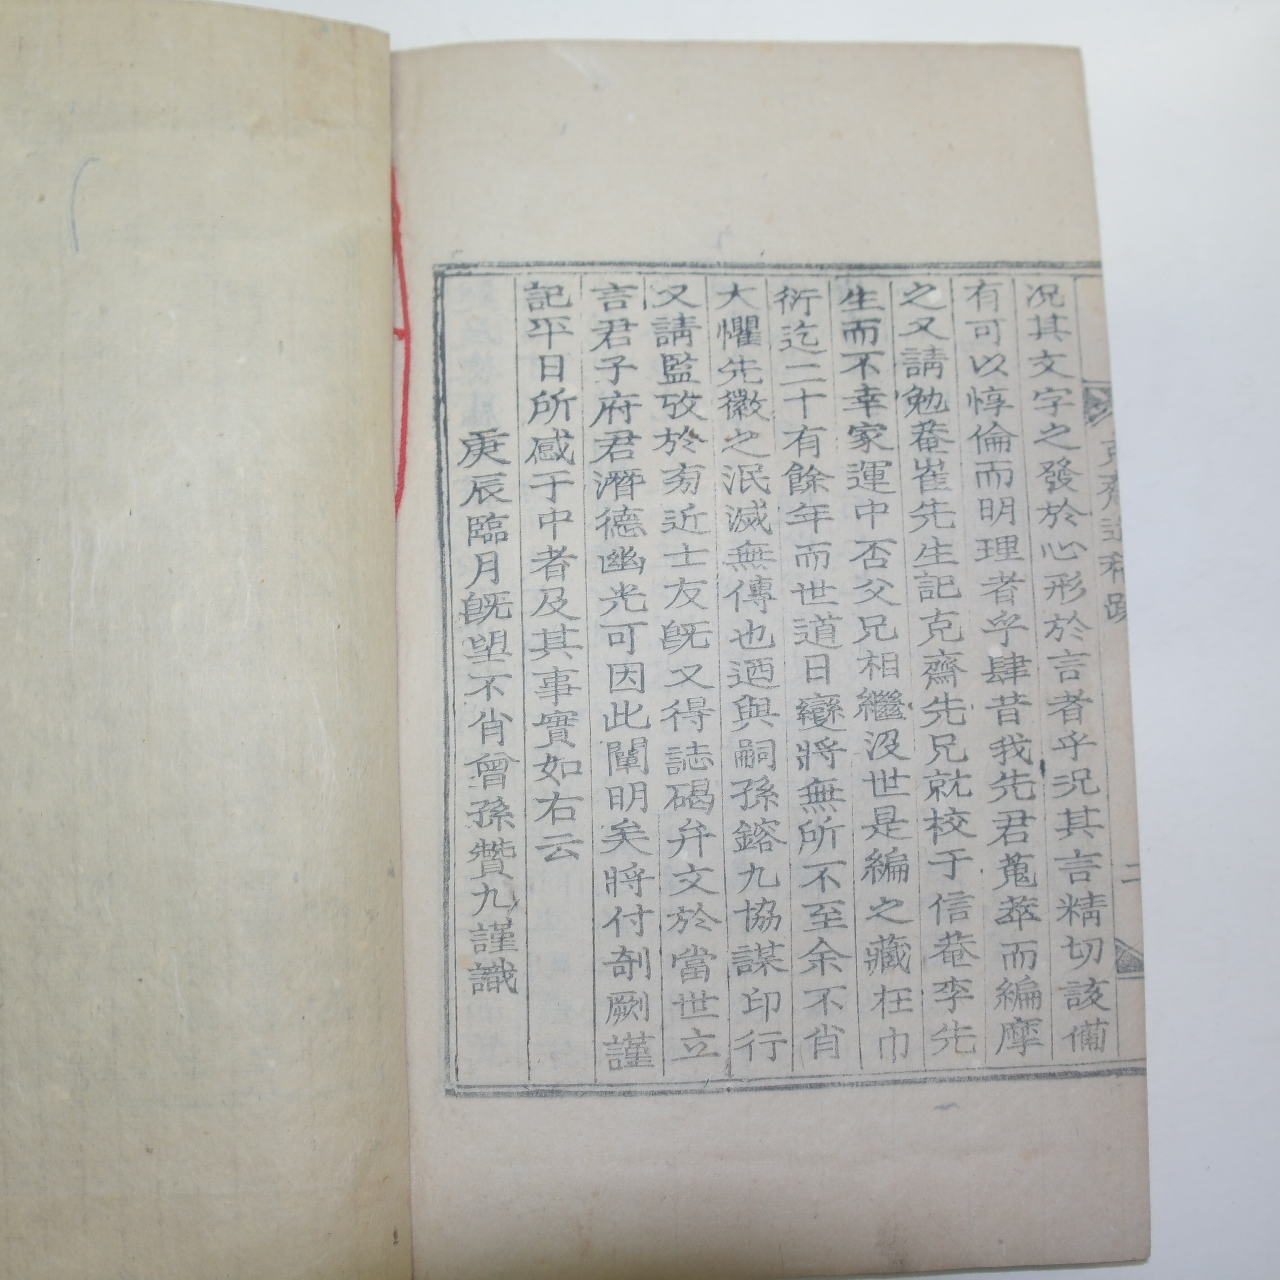 克齋遺稿跋
二
况其文字之發於心形於言者乎况其言精切該備
有可以惇倫而明理者乎肆昔我先君蒐萃而編摩
之又請勉菴崔先生記克齋先兄就校于信菴李先
生而不幸家運中否父兄相繼沒世是編之藏在巾
衍迄二十有餘年而世道日變將無所不至余不肖
大懼先徽之泯滅無傳也迺與嗣孫鎔九協謀印行
又請監攷於旁近士友旣又得誌碣弁文於當世立
言君子府君潛德幽光可因此闡明矣將付剞劂謹
記平日所感于中者及其事實如右云
庚辰臨月旣望不肖曾孫贊九謹識